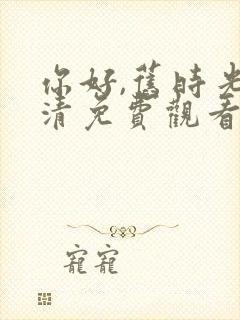 你好,舊時光
清免費觀看
寵寵